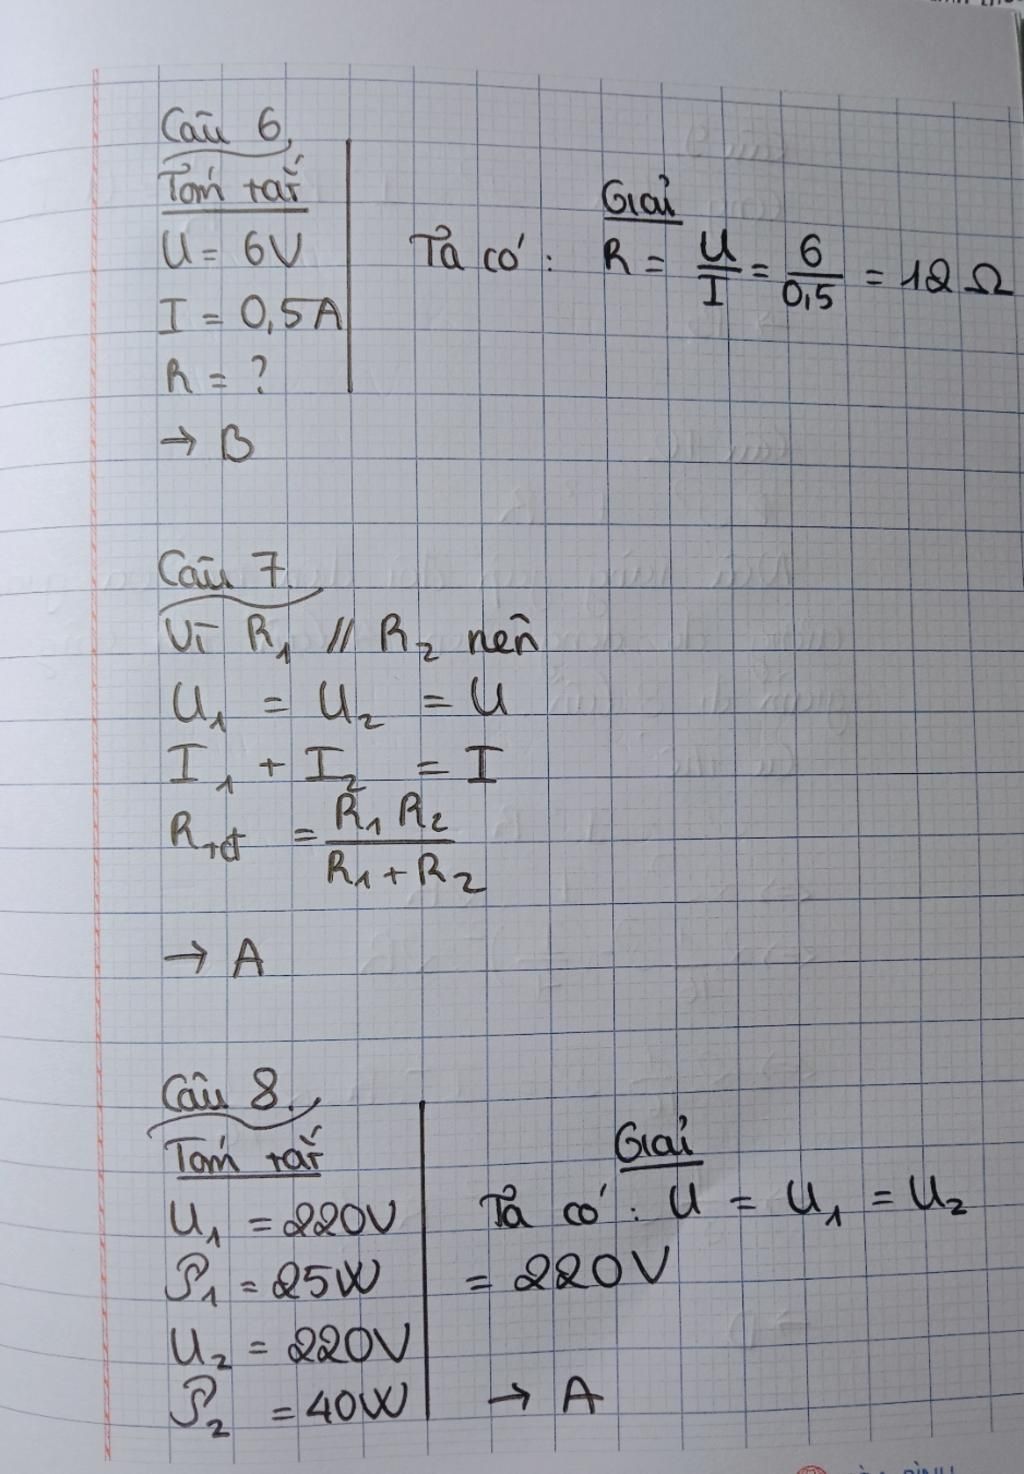 Câu 6.
Tóm tắt
U = 6V
I = 0,5A
R = ?
→ B
Giải
Ta có: R = U/I = 6/0,5 = 12 Ω
Câu 7.
Vì R₁ // R₂ nên
U₁ = U₂ = U
I₁ + I₂ = I
Rtđ = R₁ R₂ / R₁ + R₂
→ A
Câu 8.
Tóm tắt
U₁ = 220V
P₁ = 25W
U₂ = 220V
P₂ = 40W
Giải
Ta có: U = U₁ = U₂
= 220V
→ A